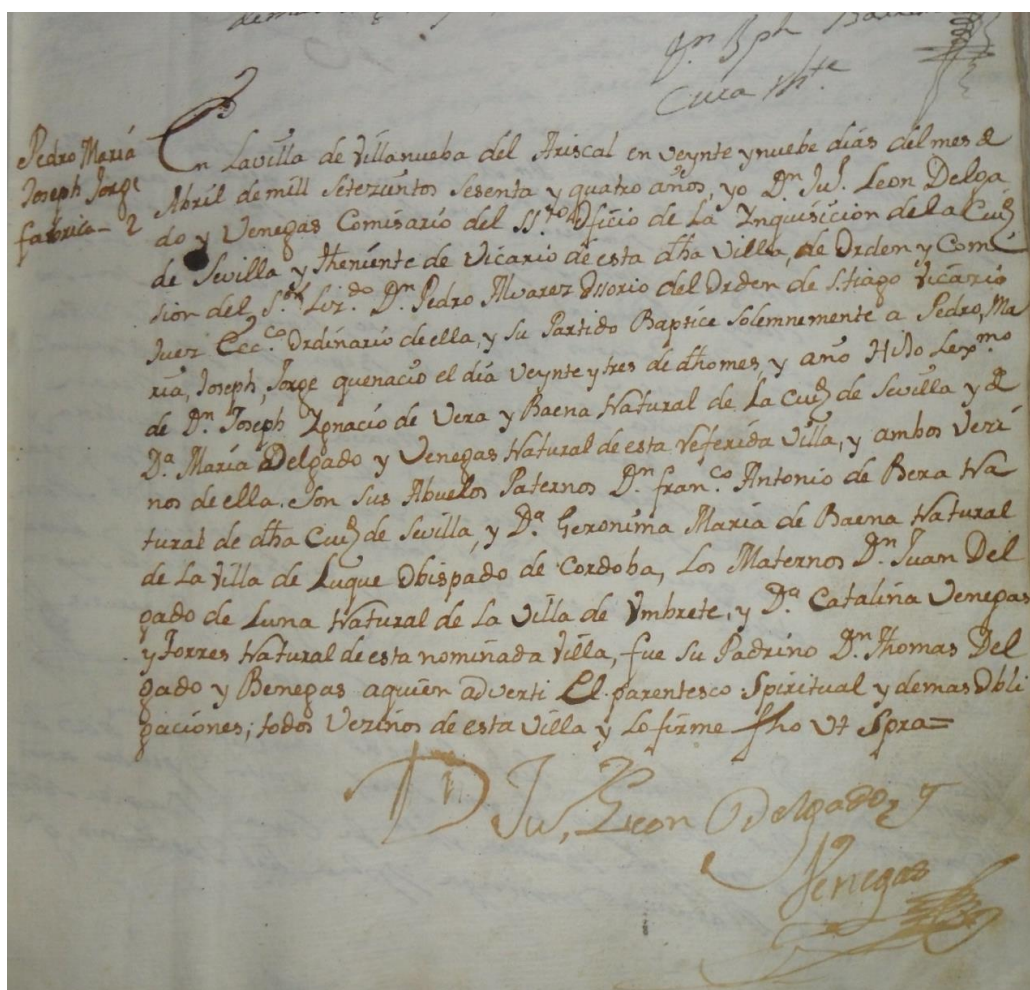 Cura Thte
Pedro María
Joseph Jorge
fabrica - 2
En Lavilla de Villanueba del Ariscal en veynte ynuebe dias del mes de
Abril demill Setezientos Sesenta y quatro años, yo Dn Jul. Leon Delga
do y Venegas Comisario del SSto Oficio de La Ynquisicion dela Ciud
de Sevilla y Theniente de Vicario de esta dha Villa, de Orden y Comi
sion del Sor Lizdo Dn Pedro Alvarez Ossorio del Orden de Stiago Vicario
Juez Eccco Ordinario de ella, y su Partido Baptice Solemnemente a Pedro, Ma
ria, Joseph, Jorge quenacio el dia Veynte y tres de dho mes, y año Hijo Lexmo
de Dn Joseph Ygnacio de Vera y Baena Natural de La Ciud de Sevilla y de
Da María Delgado y Venegas Natural de esta referida Villa, y ambos Vezi
nos de ella. Son Sus Abuelos Paternos Dn franco Antonio de Bera Na
tural de dha Ciud de Sevilla, y Da Geronima Maria de Baena Natural
de La Villa de Luque Obispado de Cordoba, Los Maternos Dn Juan Del
gado de Luna Natural de La Villa de Ymbrete, y Da Catalina Venegas
y Torres Natural de esta nominada Villa, fue Su Padrino Dn Thomas Del
gado y Benegas aquien adverti El parentesco Spiritual y demas Obli
gaciones; todos Vezinos de esta Villa y Lo firme fho Vt Spra=
Dn Jul. Leon Delgado y
Venegas